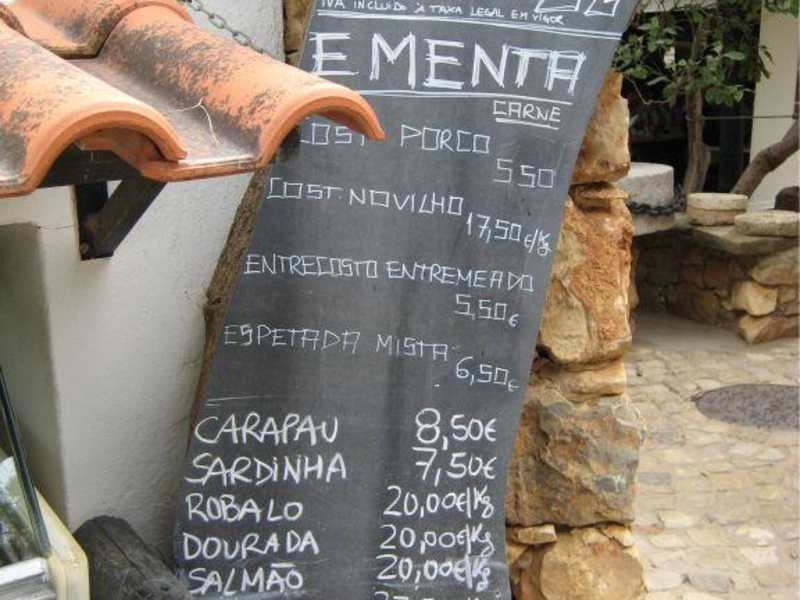 IVA INCLUIDO À TAXA LEGAL EM VIGOR
EMENTA
CARNE
COST. PORCO
5,50
COST. NOVILHO
17,50€/Kg
ENTRECOSTO ENTREMEADO
5,50€
ESPETADA MISTA
6,50€
CARAPAU 8,50€
SARDINHA 7,50€
ROBALO 20,00€/Kg
DOURADA 20,00€/Kg
SALMÃO 20,00€/Kg